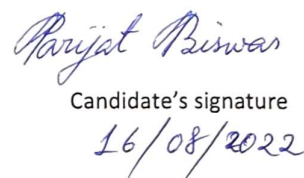 Parijat Biswas
Candidate's signature
16/08/2022